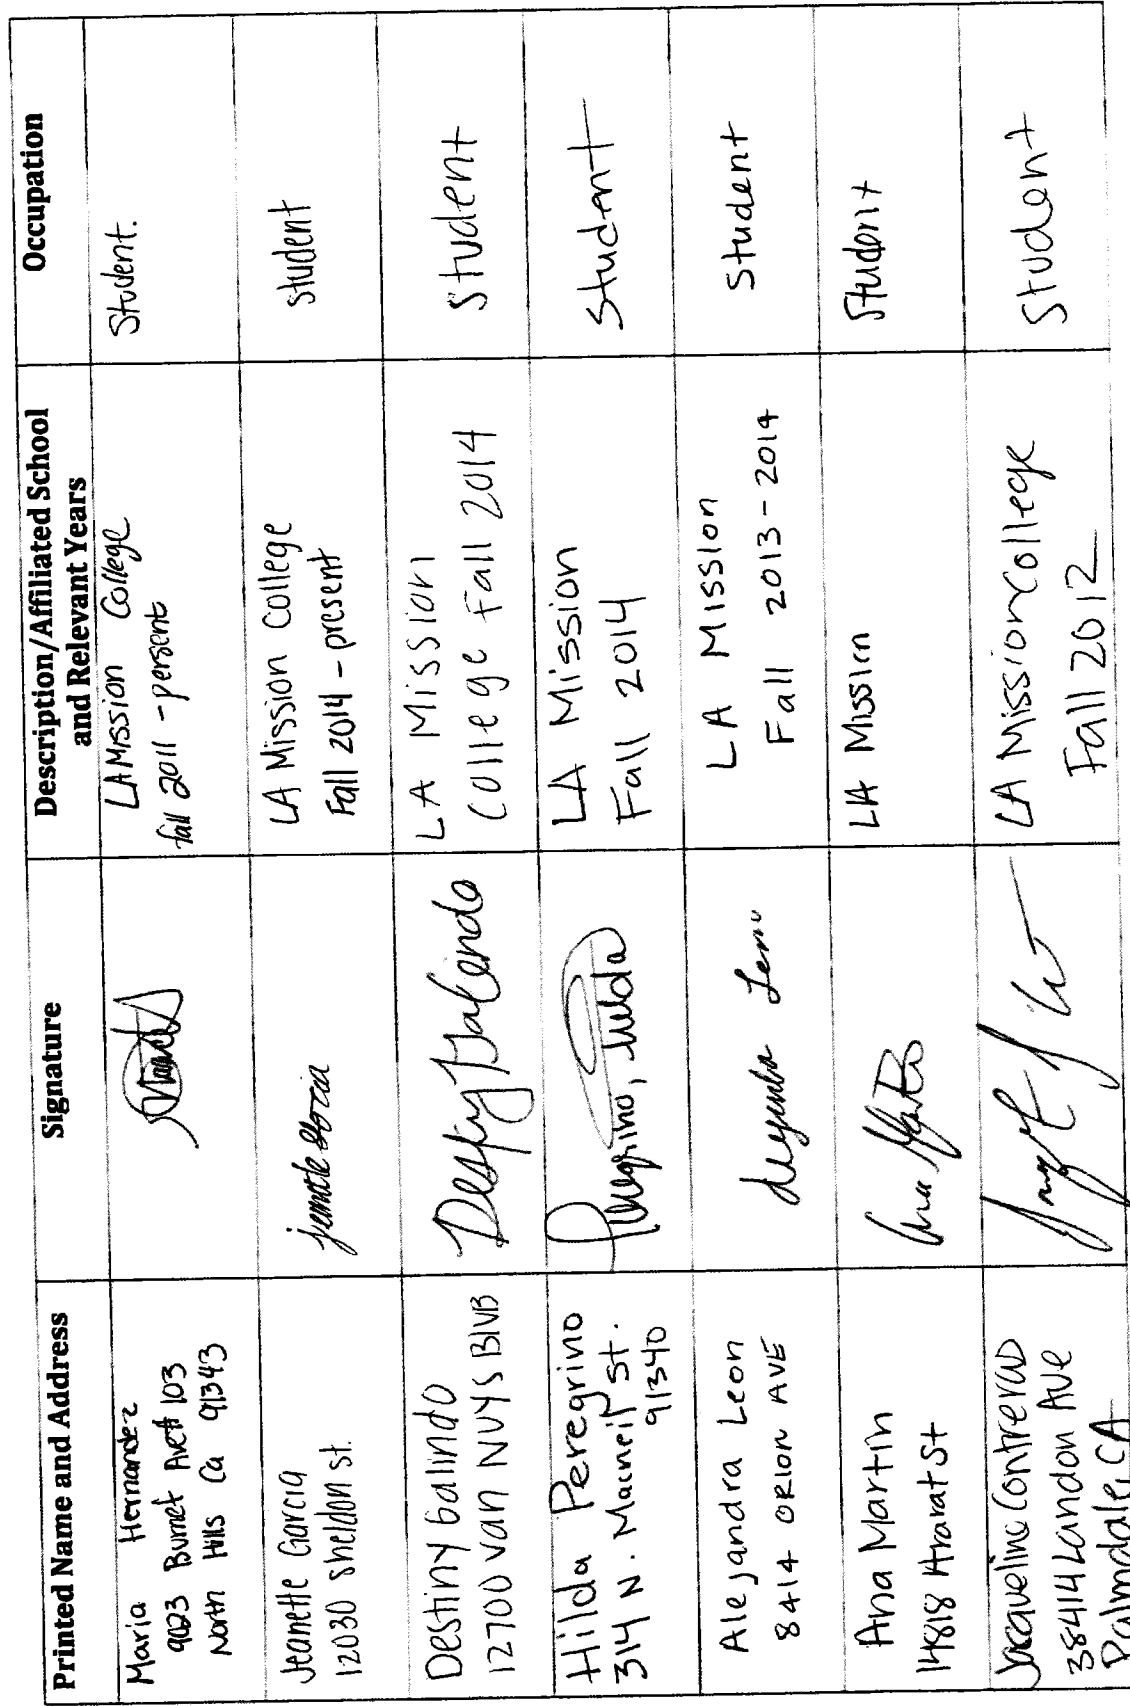 Printed Name and Address
Signature
Description/Affiliated School
and Relevant Years
Occupation
Maria Hernandez
9023 Burnet Ave# 103
North Hills Ca 91343
LA Mission College
fall 2011 - persent
Student.
Jeanette Garcia
12030 Sheldon st.
LA Mission College
Fall 2014 - present
student
Destiny Galindo
12700 Van NUYS BlVB
Destiny Galindo
LA Mission
College Fall 2014
Student
Hilda Peregrino
314 N. Macneil St.
91340
Peregrino, Hilda
LA Mission
Fall 2014
Student
Alejandra Leon
8414 ORION AVE
LA Mission
Fall 2013-2014
Student
Ana Martin
14818 Ararat St
LA Mission
Student
Jacqueline Contreras
38414 Landon Ave
Palmdale, CA
LA Mission College
Fall 2012
Student